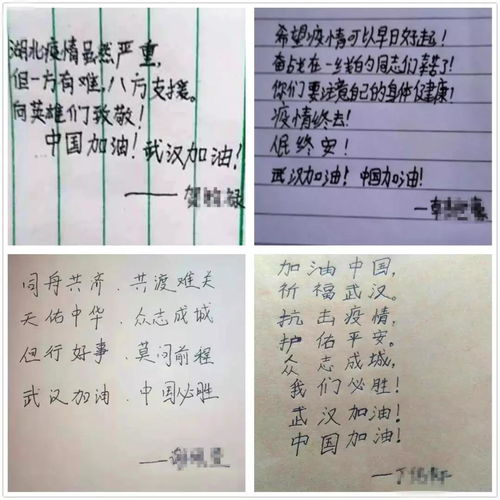 湖北疫情虽然严重,
但一方有难,八方支援。
向英雄们致敬!
中国加油!武汉加油!
——贺
希望疫情可以早日好起!
奋战在一线的同志们辛苦了!
你们要注意自己的身体健康!
疫情终去!
民终安!
武汉加油!中国加油!
同舟共济、共渡难关
天佑中华、众志成城
但行好事、莫问前程
武汉加油、中国必胜
加油中国,
祈福武汉。
抗击疫情,
护佑平安。
众志成城,
我们必胜!
武汉加油!
中国加油!
——丁